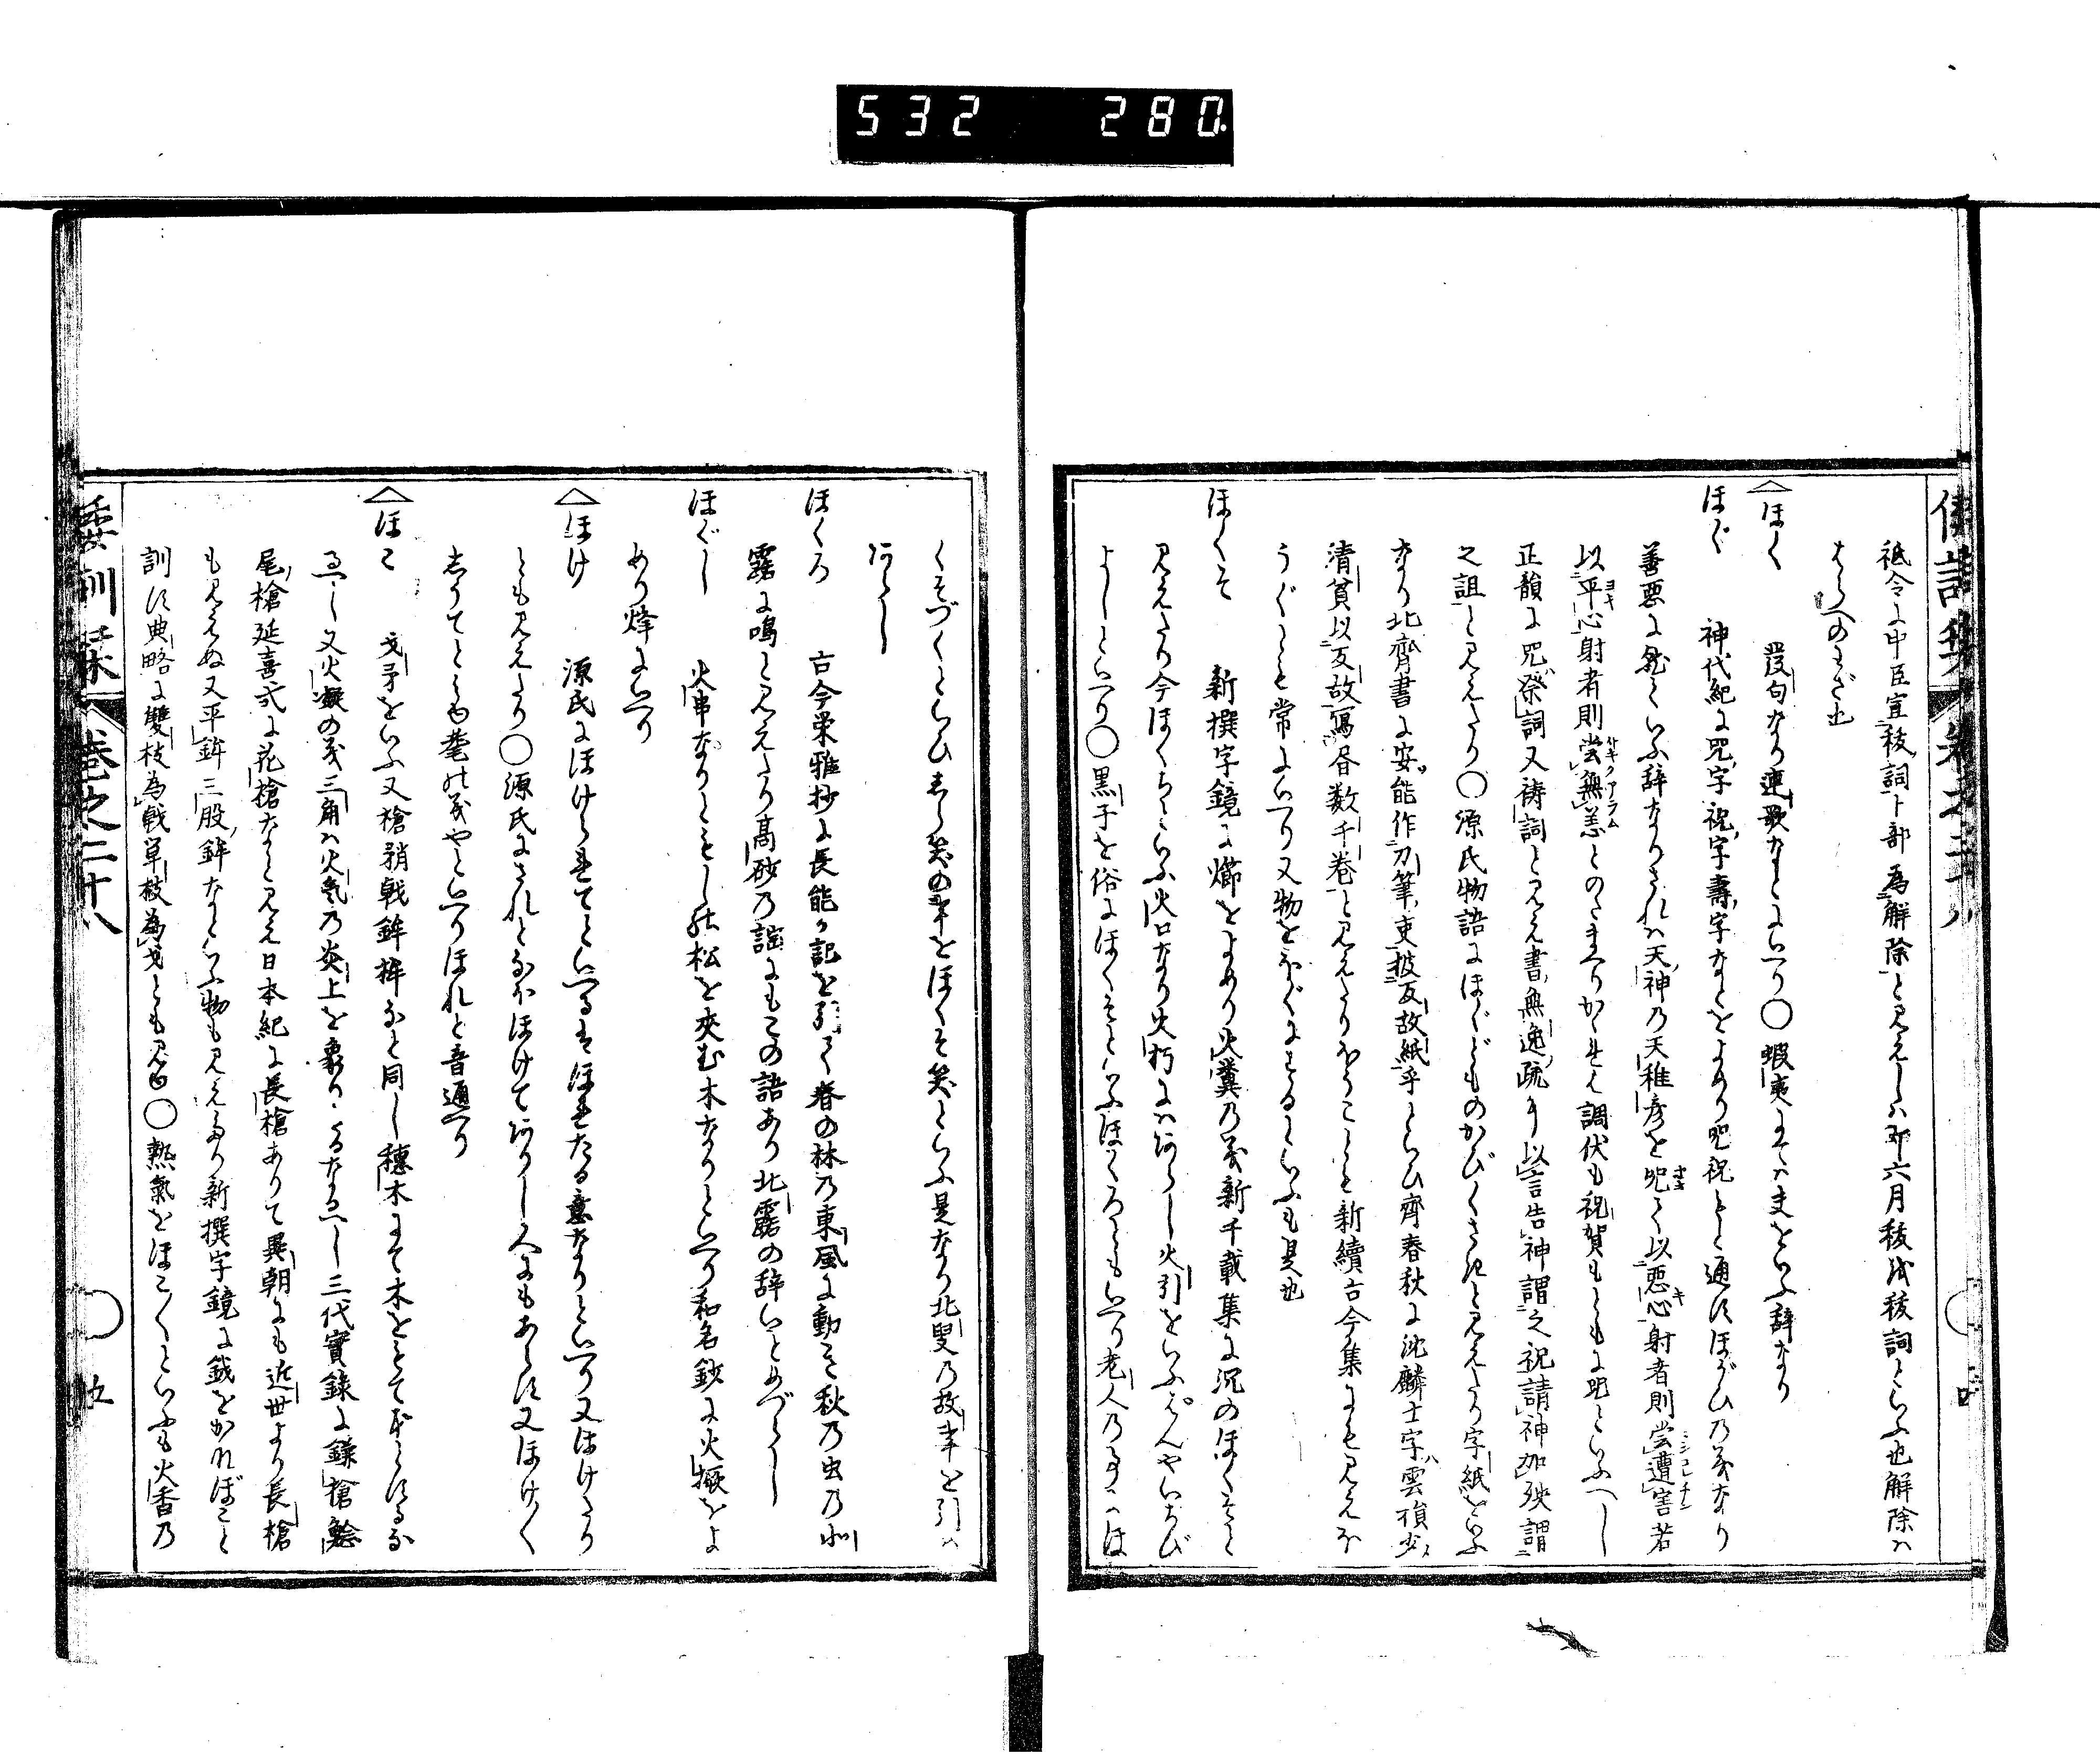 532 280
倭訓栞 巻之二十八
祇令に中臣宣祓詞卜部為解除と見えしハ六月祓以祓詞といふ也解除ハ
はらへのわざ也
ほく 発句なり連歌なとにいへり〇蝦夷にてハまをいふ辞なり
ほぐ 神代紀に咒字祝字壽字なとをよめり咒祝もと通にほがひの義なり
善悪に就ていふ辞なりされハ天神乃天稚彦を咒て以悪心射者則当遭害若
以平心射者則当無恙とのたまへりかゝれハ調伏も祝賀もともに咒といふへし
正韻に咒祭詞又祷詞と見え書無逸疏に以言告神謂之祝請神加殃謂
之詛と見えたり〇源氏物語にほぐどものかびくさきと見えたり字紙をいふ
なり北齊書に安能作刀筆吏披反故紙乎といひ齊春秋に沈麟士字雲禎少
清貧以反故写書数千巻と見えたりほうことと新續古今集にも見えほ
うぐとと常にいへり又物をほぐにするといふも是也
ほくそ 新撰字鏡に㸅をよめり火糞乃義新千載集に沉のほくそと
見えたり今ほくちといふ火口なり火朽にハあらし火引をいふはんやいちび
よしといへり〇黒子を俗にほくそといふほくろともいへり老人乃事にほ
くそづくといひまし笑の事をほくそ笑といふ是なり北叟乃故事を引ハ
あらし
ほくろ 古今栄雅抄に長能か記を引て春の林乃東風に動き秋乃虫乃北
露に鳴と見えたり高砂乃謡にもこの語あり北露の辞いとめづらし
ほぐし 火串なりともし能松を夾む木なりといへり和名鈔に火橛をよ
めり烽にいへり
ほけ 源氏にほけられてといへるはほれたる意なりといへり又ほけたり
とも見えたり〇源氏にされとなほほけてありし人にもあらす又ほけ〱
しうてとも耄能義やといへりほれと音通へり
ほこ 戈矛をいふ又槍矟戟鉾桙なと同し穂木にて木をもてほとするな
るへし又火凝の義三角ハ火氣乃炎上を象りたるなるへし三代實録に鐰槍鯰
尾槍延喜式に花槍なと見え日本紀に長槍ありて異朝にも近世より長槍
も見えぬ又平鉾三股鉾なといふ物も見えたり新撰字鏡に鉞をかれぼこと
訓に典略に雙枝為戟単枝為戈とも見ゆ〇熱氣をほこ〱といふも火香乃
倭訓栞 巻之二十八 五